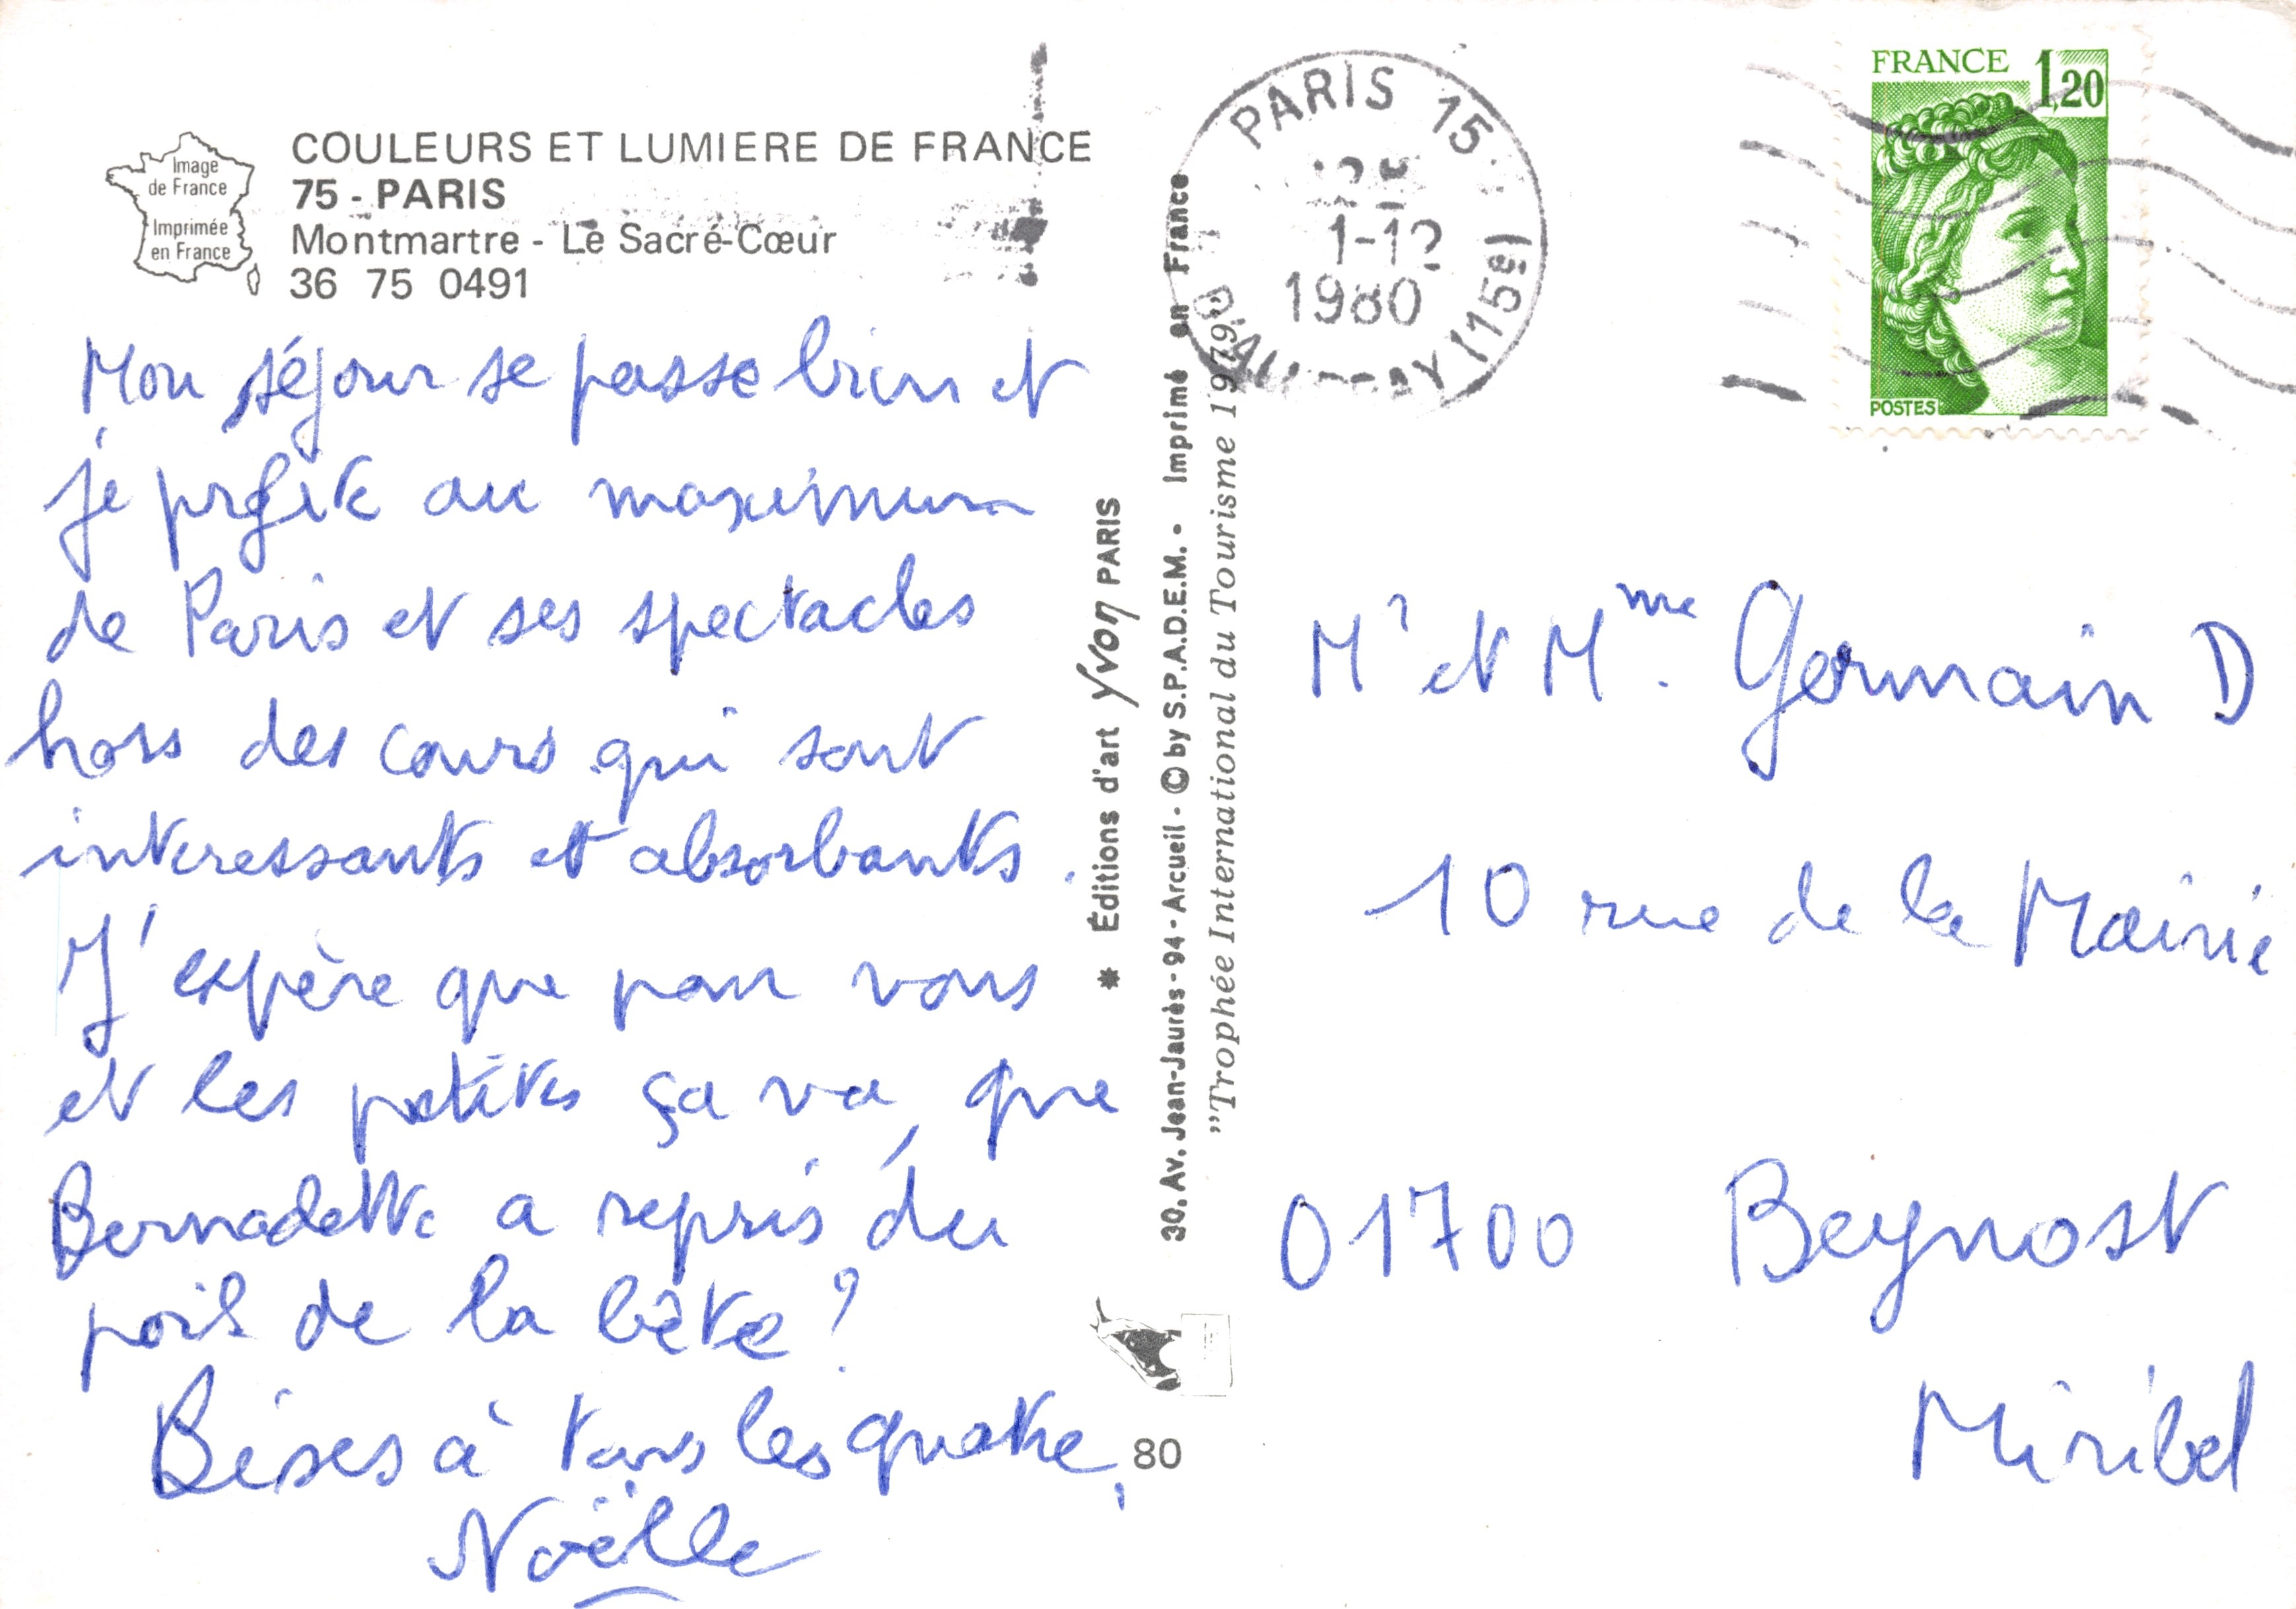 COULEURS ET LUMIERE DE FRANCE
75 - PARIS
Montmartre - Le Sacré-Cœur
36 75 0491
Image
de France
Imprimée
en France
Mon séjour se passe bien et
je profite au maximum
de Paris et ses spectacles
hors des cours qui sont
interessants et absorbants.
J'espère que pour vous
et les petites ça va, que
Bernadette a repris du
poil de la bête ?
Bises à tous les quatre,
Noëlle
* Éditions d'art yvon PARIS
30, Av. Jean-Jaurès - 94 - Arcueil - © by S.P.A.D.E.M. • Imprimé en France
"Trophée International du Tourisme 1979"
80
PARIS 15
1-12
1980
(15e)
FRANCE 1,20
POSTES
Mr et Mme Germain D
10 rue de la Mairie
01700 Beynost
Miribel